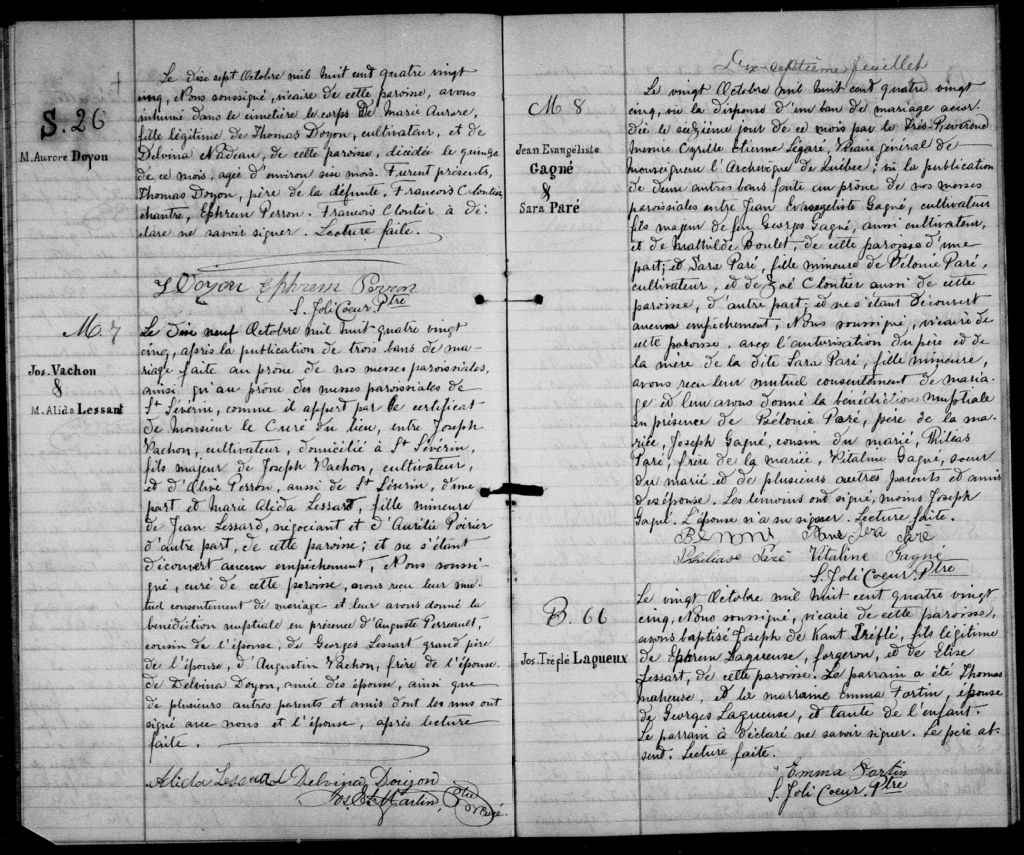 S. 26
M. Aurore Doyon
Le dix sept Octobre mil huit cent quatre vingt
cinq, Nous soussigné, vicaire de cette paroisse, avons
inhumé dans le cimetière le corps de Marie Aurore,
fille légitime de Thomas Doyon, cultivateur, et de
Delvina Nadeau, de cette paroisse, décédée le quinze
de ce mois, agée d'environ six mois. Furent présents,
Thomas Doyon, père de la défunte, Francois Cloutier,
chantre, Ephrem Perron. Francois Cloutier à dé-
claré ne savoir signer. Lecture faite.
Doyon Ephrem Perron
S. Joli Coeur Ptre
M. 7
Jos. Vachon
&
M. Alida Lessart
Le dix neuf Octobre mil huit quatre vingt
cinq, après la publication de trois bans de ma-
riage faite au prône de nos messes paroissiales,
ainsi qu'au prône des messes paroissiales de
St Séverin, comme il appert par le certificat
de Monsieur le Curé du lieu, entre Joseph
Vachon, cultivateur, domicilié à St Séverin,
fils majeur de Joseph Vachon, cultivateur,
et d'Olive Perron, aussi de St Séverin, d'une
part et Marie Alida Lessard, fille mineure
de Jean Lessard, négociant et d'Aurélie Poirier
d'autre part, de cette paroisse; et ne s'étant
découvert aucun empêchement, Nous soussi-
gné, curé de cette paroisse, avons reçu leur mu-
tuel consentement de mariage et leur avons donné la
bénédiction nuptiale en présence d'Auguste Perreault,
cousin de l'épouse, de Georges Lessart grand père
de l'épouse, d'Augustin Vachon, frère de l'épouse
de Delvina Doyon, amie des épouse, ainsi que
de plusieurs autres parents et amis dont les uns ont
signé avec nous et l'épouse, après lecture
faite.
Alida Lessard Delvina Doiyon
Jos. Martin, Ptre
Curé.
Dix-septième feuillet
M 8
Jean Evangéliste
Gagné
&
Sara Paré
Le vingt Octobre mil huit cent quatre vingt
cinq, vu la dispense d'un ban de mariage accor-
dée le seizième jour de ce mois par le Très Révérend
Messire Cyrille Etienne Légaré, Vicaire général de
Monseigneur l'Archevêque de Québec; vu la publication
de deux autres bans faite au prône de nos messes
paroissiales entre Jean Evangéliste Gagné, cultivateur
fils majeur de feu Georges Gagné, aussi cultivateur,
et de Mathilde Boulet, de cette paroisse d'une
part; et Sara Paré, fille mineure de Bélonie Paré,
cultivateur, et de Zoé Cloutier aussi de cette
paroisse, d'autre part; et ne s'étant découvert
aucun empêchement, Nous soussigné, vicaire de
cette paroisse, avec l'autorisation du père et de
la mère de la dite Sara Paré, fille mineure,
avons reçu leur mutuel consentement de maria-
ge et leur avons donné la bénédiction nuptiale
en présence de Bélonie Paré, père de la ma-
riée, Joseph Gagné, cousin du marié, Philéas
Paré, frère de la mariée, Vitaline Gagné, soeur
du marié et de plusieurs autres parents et amis
des épouse. Les témoins ont signé, moins Joseph
Gagné. L'épouse n'a su signer. Lecture faite.
Benoni Pare Sera Paré
Philias Paré Vitaline Gagné
S. Joli Coeur Ptre
B. 66
Jos. Tréflé Lagueux
Le vingt Octobre mil huit cent quatre vingt
cinq, Nous soussigné, vicaire de cette paroisse,
avons baptisé Joseph de Kant Tréflé, fils légitime
de Ephrem Lagueuse, forgeron, et de Elise
Lessart, de cette paroisse. Le parrain a été Thomas
Maheuse, et la marraine Emma Fortin, épouse
de Georges Lagueuse, et tante de l'enfant.
Le parrain à déclaré ne savoir signer. Le père ab-
sent. Lecture faite.
Emma Fortin
S. Joli Coeur, Ptre